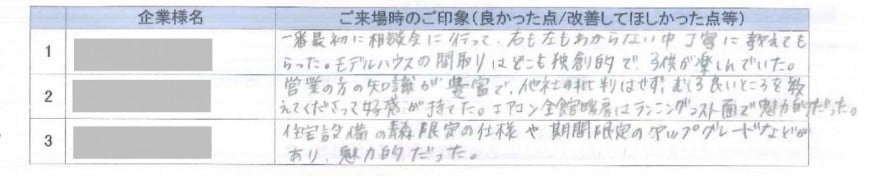 企業様名 ご来場時のご印象(良かった点/改善してほしかった点等)
1 一番最初に相談会に行って、右も左もわからない中丁寧に教えても
らった。モデルハウスの間取りはどこも独創的で、子供が楽しんでいた。
2 営業の方の知識が豊富で、他社の批判はせず、むしろ良いところを教
えてくださって好感が持てた。エアコン全館暖房はランニングコスト面で魅力的だった。
3 住宅設備の青森限定の仕様や期間限定のアップグレードなどが
あり、魅力的だった。